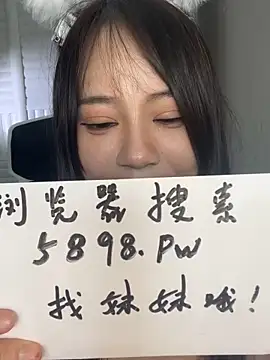 浏览器搜索
5898.PW
找妹妹哦!